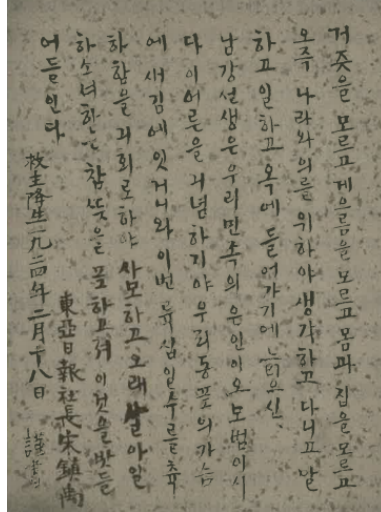 거즛을 모르고 게으름을 모르고 몸과 집을 모르고
오즉 나라와 의를 위하야 생각하고 다니고 말
하고 일하고 옥에 들어가기에 늙으신
남강선생은 우리 민족의 은인이오 모범이시
다 이 어른을 긔념하기야 우리 동포의 가슴
에 새김에 잇거니와 이번 륙십일수를 축
하함을 긔회로 하야 사모하고 오래 살아
하 참 뜻을 표하고져 이것을 밧들
어 들인다
救主降生一九二四年 二月十八日
東亞日報社長 宋鎮禹 謹書